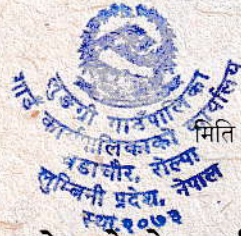 लुङग्री गाउँपालिका
गाउँ कार्यपालिकाको कार्यालय
वडाचौर, रोल्पा
लुम्बिनी प्रदेश, नेपाल
स्था.२०७३
मिति